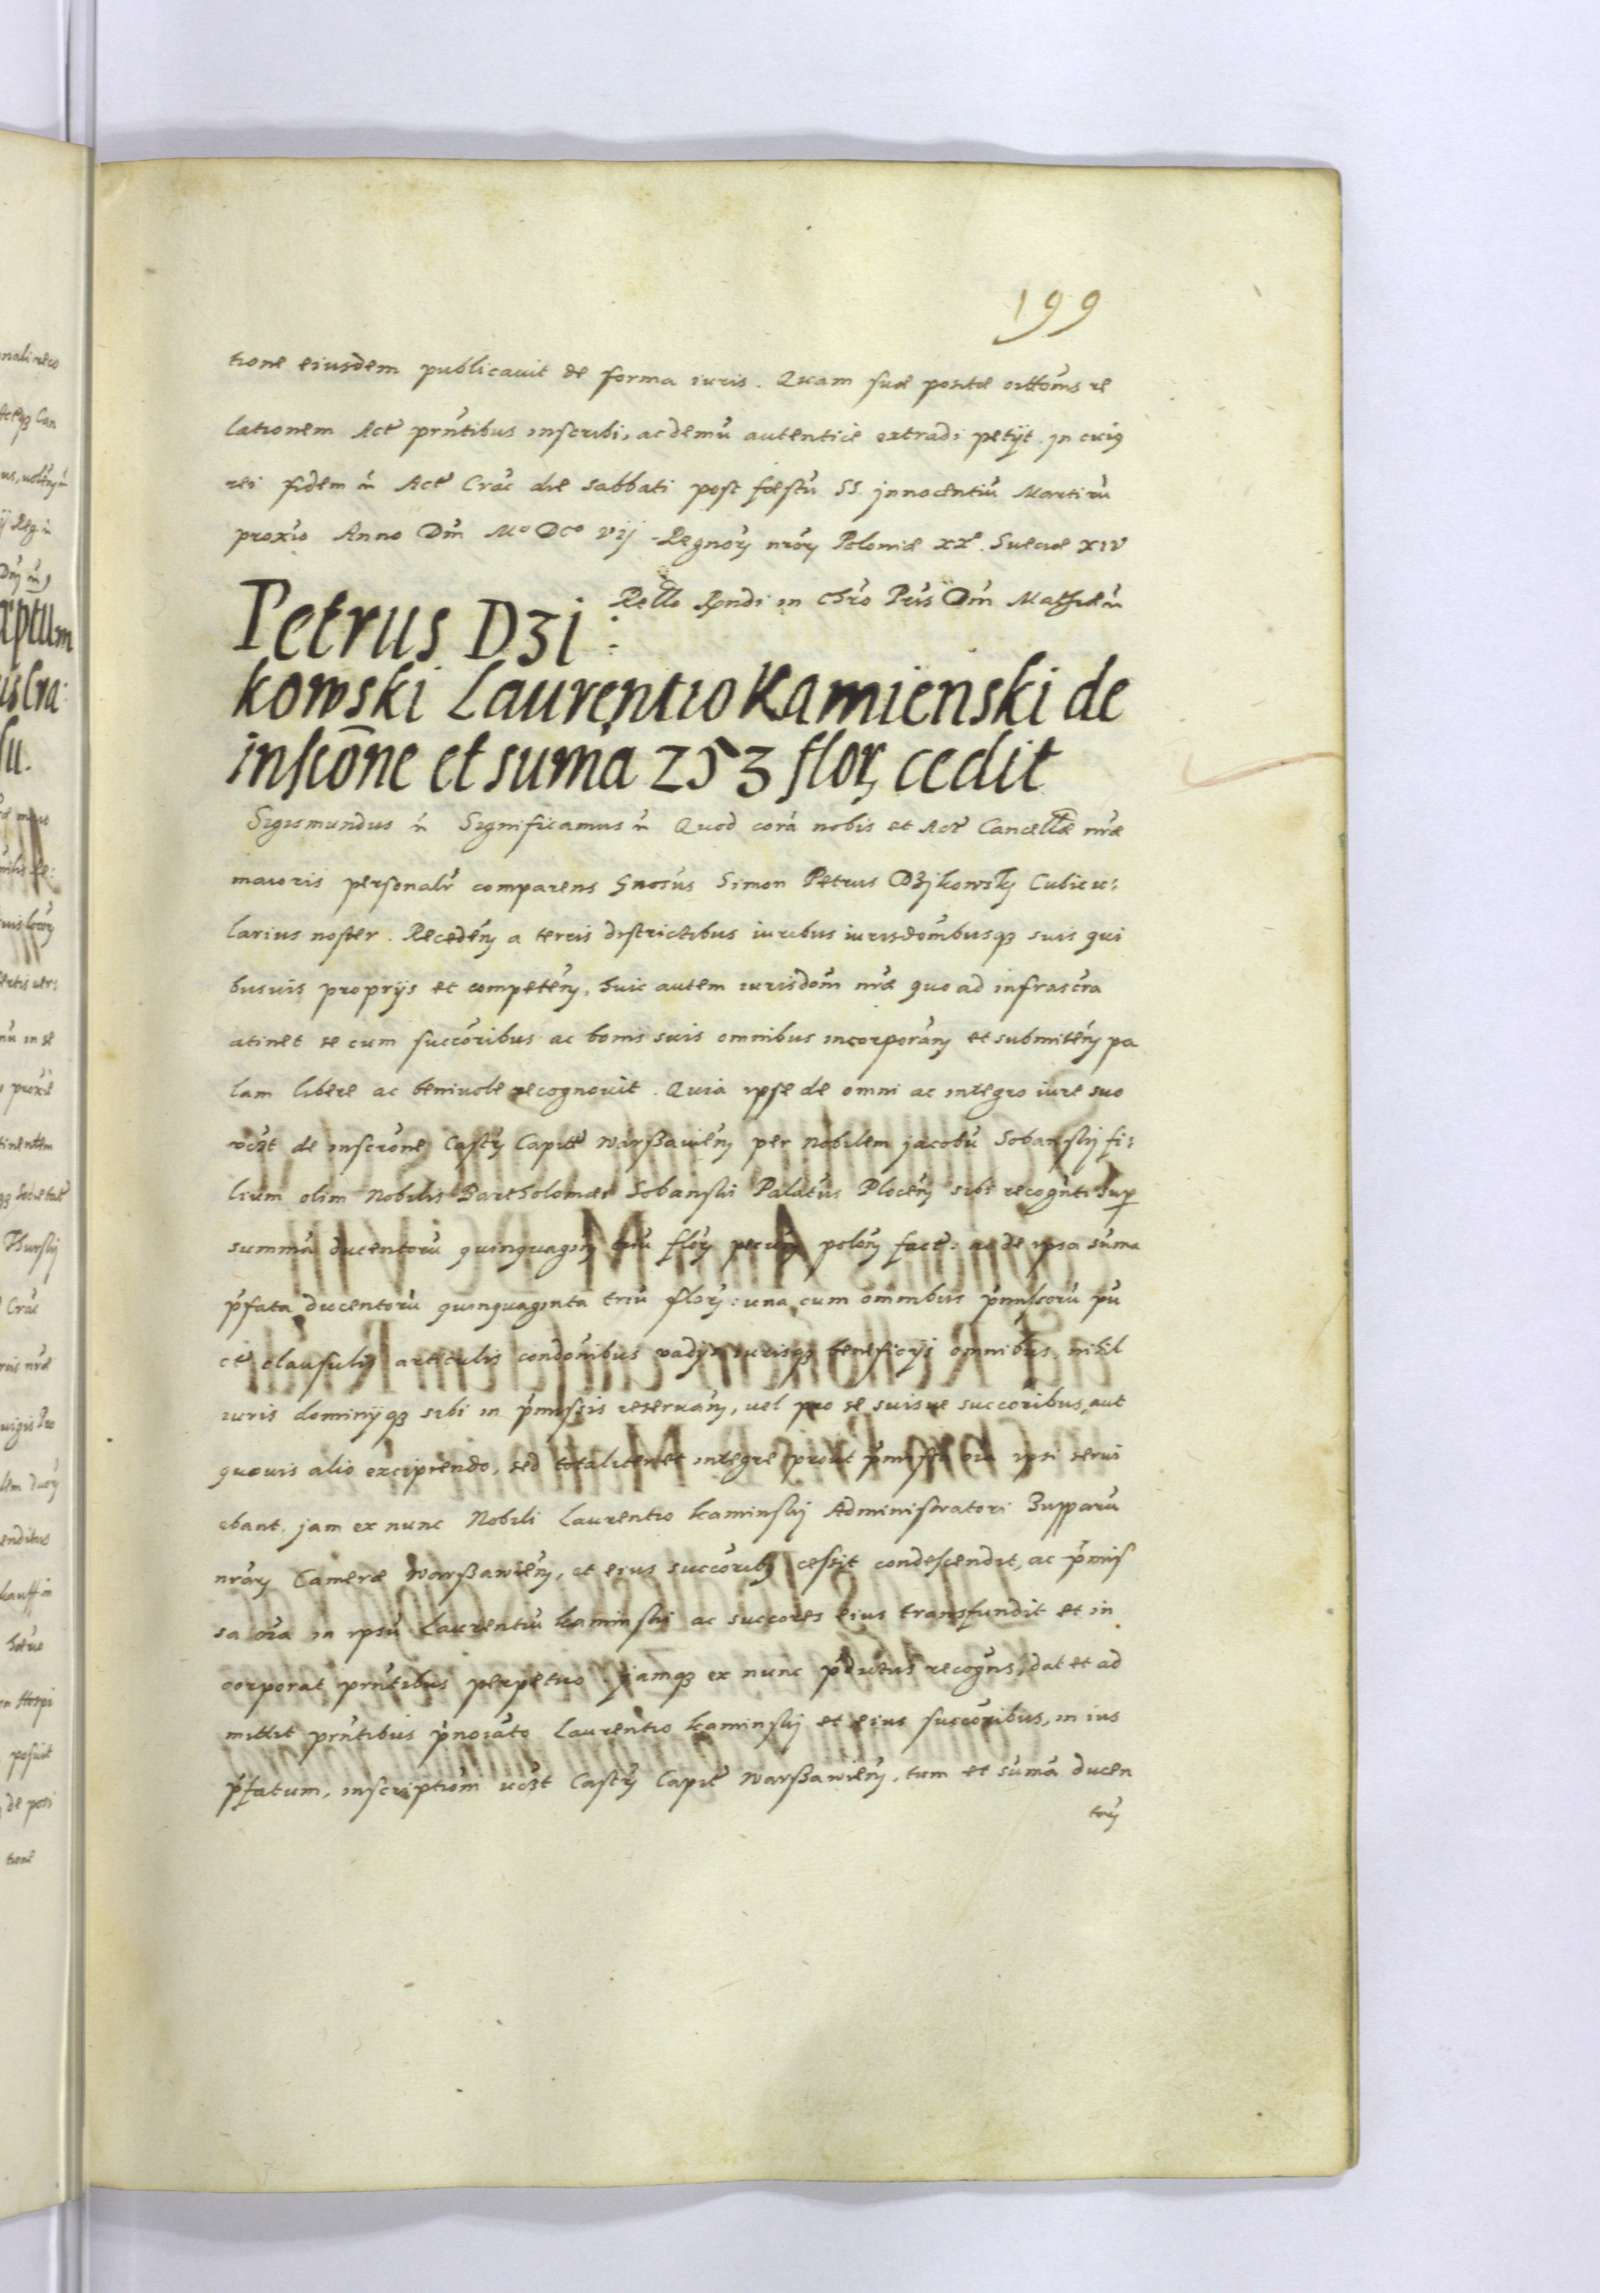 199
tione eiusdem publicauit de forma iuris. Quam suæ re
lationem Act prñtibus inscribi, ac demũ autentice extradi petijt. In cuiꝰ
rei fidem ẽ Act Crac die sabbati post fæstũ SS. Jnnocentiũ Martirũ
proxio Anno Dñi Mo Dco vij Regnorꝝ nrorꝝ Poloniæ xxo. Sueciæ xiv
Rello Rondi in Chro Pris Dñi Mathiæ ẽ
Petrus Dzi:
kowski Laurentio Kamienski de
inscõne et suma 253 florꝝ cedit
Sigismundus ẽ Significamus ẽ Quod corã nobis et Act Cancellæ nræ
maioris personalr comparens Gnosus Simon Petrus Dzjkowskÿ Cubicu:
larius noster. Recedẽn a terris districtibus iuribus iurisdõnibusqꝫ suis qui
busuis proprijs et competẽn, huic autem iurisdõni nræ quo ad infrascra
atinet se cum succõribus ac bonis suis omnibus incorporãn et submitẽn pa
lam libere ac beniuole recognouit. Quia ipse de omni ac integro iure suo
vczt de inscrone Castrꝝ Capitt Warßawiẽn per Nobilem Jacobũ Sobanskÿ fi:
lium olim Nobilis Bartholomæi Sobanski Palatũs Plocẽn sibi recognti sup
summã ducentorũ quinquagin triũ florꝝ pecun polon fact: ac de ipsa suma
p̃fata ducentorũ quinquaginta triũ florꝝ: una cum omnibus p̃missorũ pũ
ct clausulis articulis condõnibus vadijs iurisqꝫ beneficijs omnibus, nihil
iuris dominijqꝫ sibi in p̃missis reseruãn, uel pro se suisue succoribus, aut
quouis alio excipiendo, sed totaliter et integre prout p̃missa oia ipsi serui
ebant. jam ex nunc Nobili Laurentio Kaminskÿ Administratori Zupparũ
nrarꝝ Cameræ Warßawiẽn, et eius succoribꝫ cessit condescendit, ac p̃mis
sa oĩa in ipsũ Laurentiũ Kaminski ac succores eius transfundit et in
corporat prñtibus perpetuo. jamqꝫ ex nunc p̃dictus recogns, dat et ad
mittit prñtibus p̃noiato Laurentio Kaminskÿ et eius succoribus, in ius
p̃fatum, inscriptiom vczt Castrꝝ Capitt Warßawiẽn, tum et sumã ducen
torꝝ